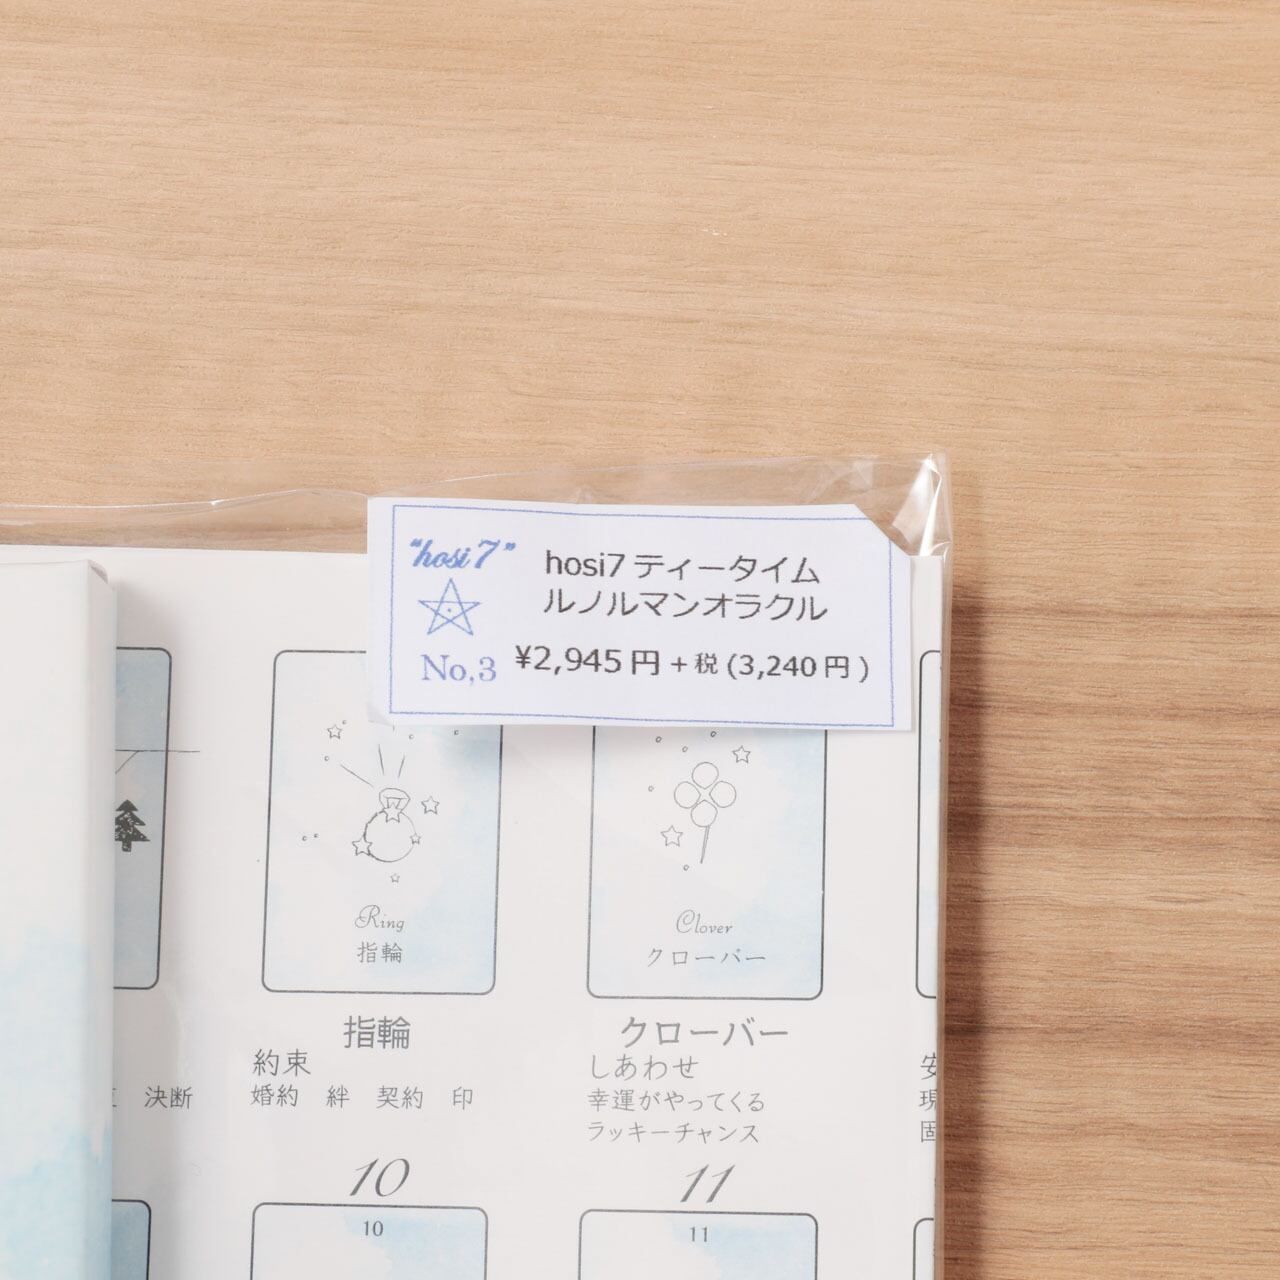 "hosi7"
No,3
hosi7 ティータイム
ルノルマンオラクル
¥2,945 円 + 税 (3,240 円 )
Ring
指輪
Clover
クローバー
指輪
約束
婚約 絆 契約 印
クローバー
しあわせ
幸運がやってくる
ラッキーチャンス
決断
安
現
固
10
11
10
11